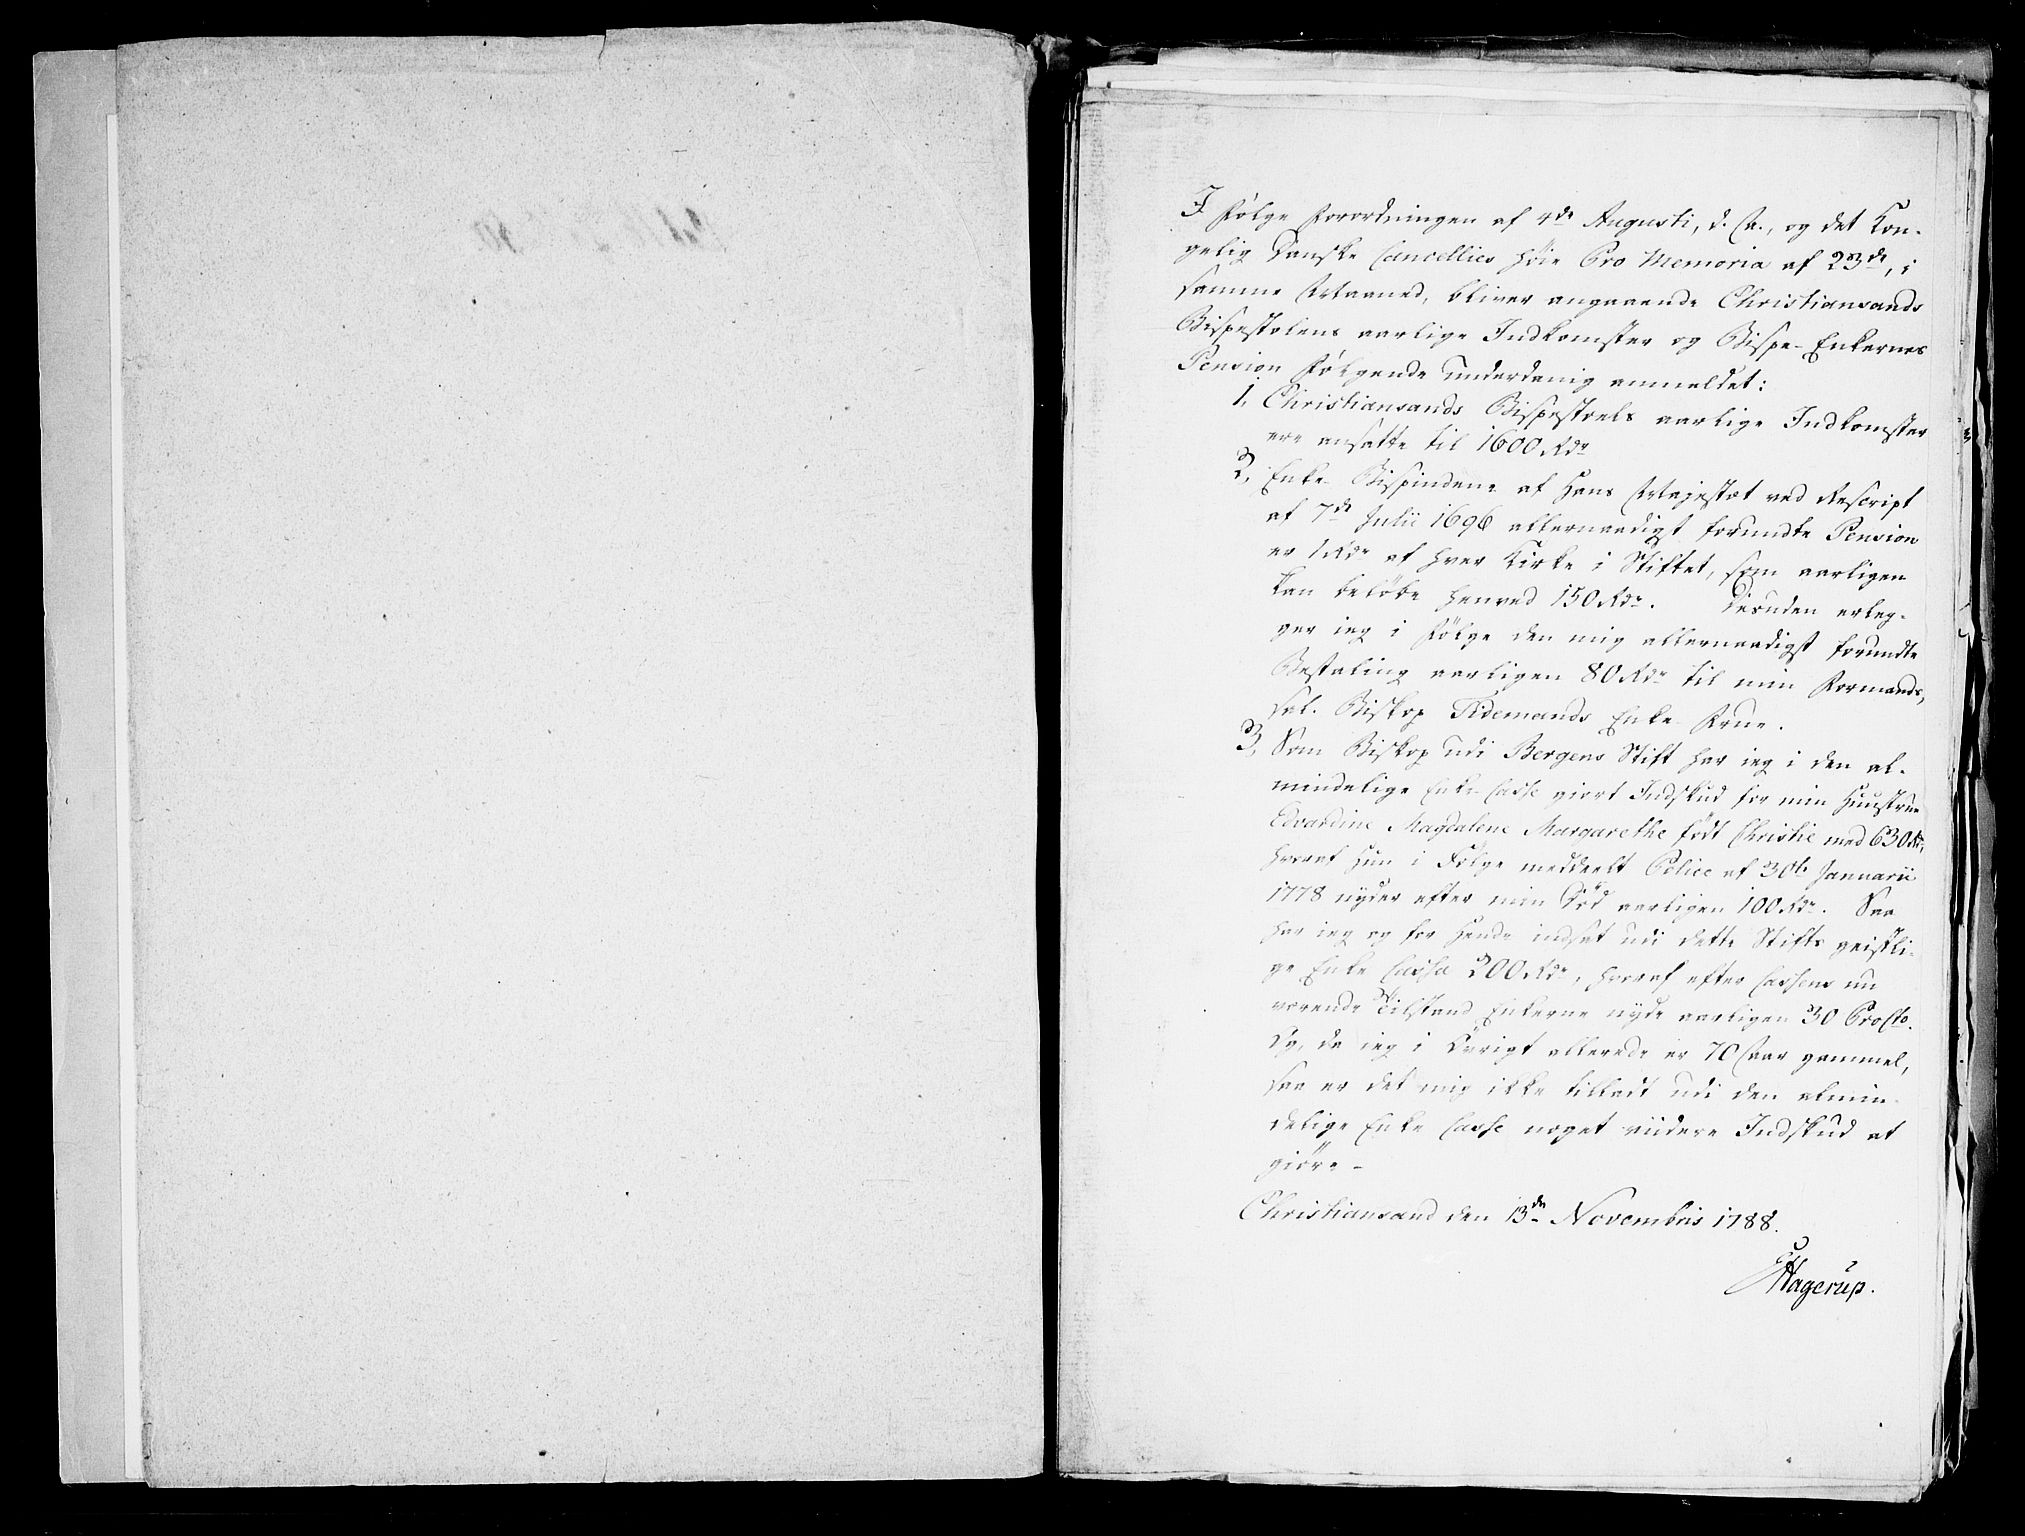 I følge Forordningen af 4de Augusti, d. A., og det Kon-
gelig Danske Cancellies høie Pro Memoria af 23de, i
samme Maaned, bliver angaaende Christiansands
Bispestolens aarlige Indkomster og Bispe-Enkernes
Pension følgende underdanig anmeldet:
1, Christiansands Bispestoels aarlige Indkomster
ere ansatte til 1600 Rdr
2, Enke Bispindene af Hans Majestæt ved Rescript
af 7de Julii 1696 allernaadigst forundte Pension
er 1 Rdr af hver Kirke i Stiftet, som aarligen
kan beløbe henved 150 Rdr. Desuden erleg-
ger ieg i følge den mig allernaadigst forundte
Bestaling aarligen 80 Rdr til min Formands,
sal. Biskop Tidemands Enke Frue.
3, Som Biskop udi Bergens Stift har ieg i den al-
mindelige Enke Casse giort Indskud for min Huustrue
Edvardine Magdalene Margarethe født Christie med 630 Rdr,
hvoraf hun i Følge meddeelt Police af 30te Januarii
1778 nyder efter min Død aarligen 100 Rdr. Saa
har ieg og for hende indsat udi dette Stifts geistli-
ge Enke Cassa 200 Rdr, hvoraf efter Cassens nu
værende Tilstand Enkerne nyde aarligen 30 ProCto.
Og, da ieg i Øvrigt allerede er 70 Aar gammel,
saa er det mig ikke tilladt udi den almin-
delige Enke Casse noget viidere Indskud at
giøre -
Christiansand den 13de Novembris 1788.
Hagerup.